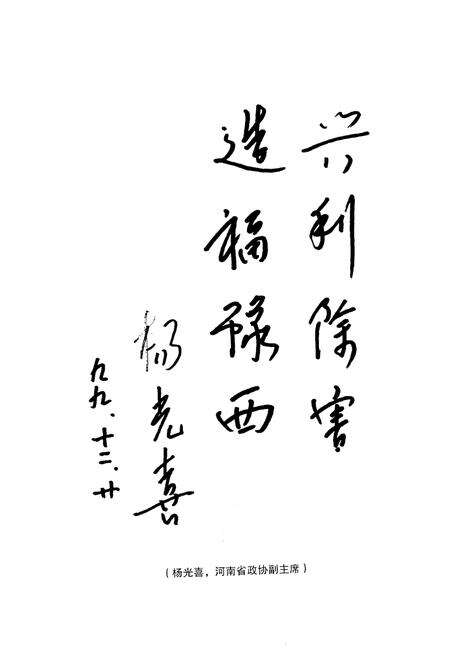 兴利除害
造福豫西
杨光喜
九九、十二、廿
（杨光喜，河南省政协副主席）